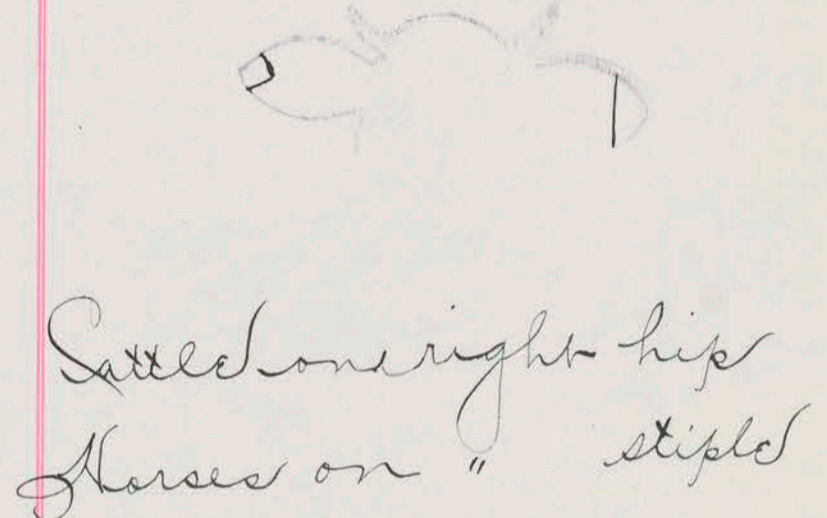 Cattle on right hip
Horses on " stifle